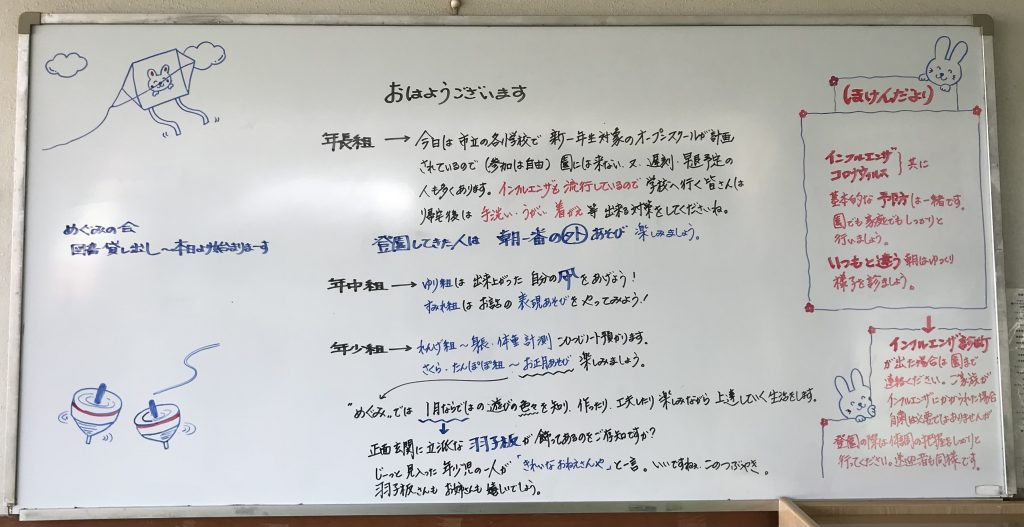 おはようございます
年長組 → 今日は市立の各小学校で新一年生対象のオープンスクールが計画
されているので(参加は自由)園には来ない、又、遅刻・早退予定の
人も多くあります。インフルエンザも流行しているので学校へ行く皆さんは
帰宅後は手洗い・うがい・着がえ等出来る対策をしてくださいね。
登園してきた人は朝一番の外あそび楽しみましょう。
年中組 → ゆり組は出来上がった自分の凧をあげよう!
すみれ組はお話の表現あそびをやってみよう!
年少組 → れんげ組〜身長・体重計測
さくら・たんぽぽ組〜お正月あそび楽しみましょう。
"めぐみ"では1月ならではの遊びの色々を知り、作ったり、工夫したり楽しみながら上達していく生活をします。
正面玄関に立派な羽子板が飾ってあるのをご存知ですか?
じーっと見入った年少児の一人が「きれいなおねえさんや」と一言。いいですねぇこのつぶやき。
羽子板さんもお姉さんも嬉しいでしょう。
めぐみの会
図書貸し出し〜本日より始まりまーす
ほけんだより
インフルエンザ
コロナウィルス
共に
基本的な予防は一緒です。
園でも家庭でもしっかりと
行いましょう。
いつもと違う朝はゆっくり
様子を診ましょう。
インフルエンザ診断
が出た場合は園まで
連絡ください。ご家族が
インフルエンザにかかられた場合
自粛は必要ではありませんが
登園の際は体調の把握をしっかりと
行ってください。送迎者も同様です。